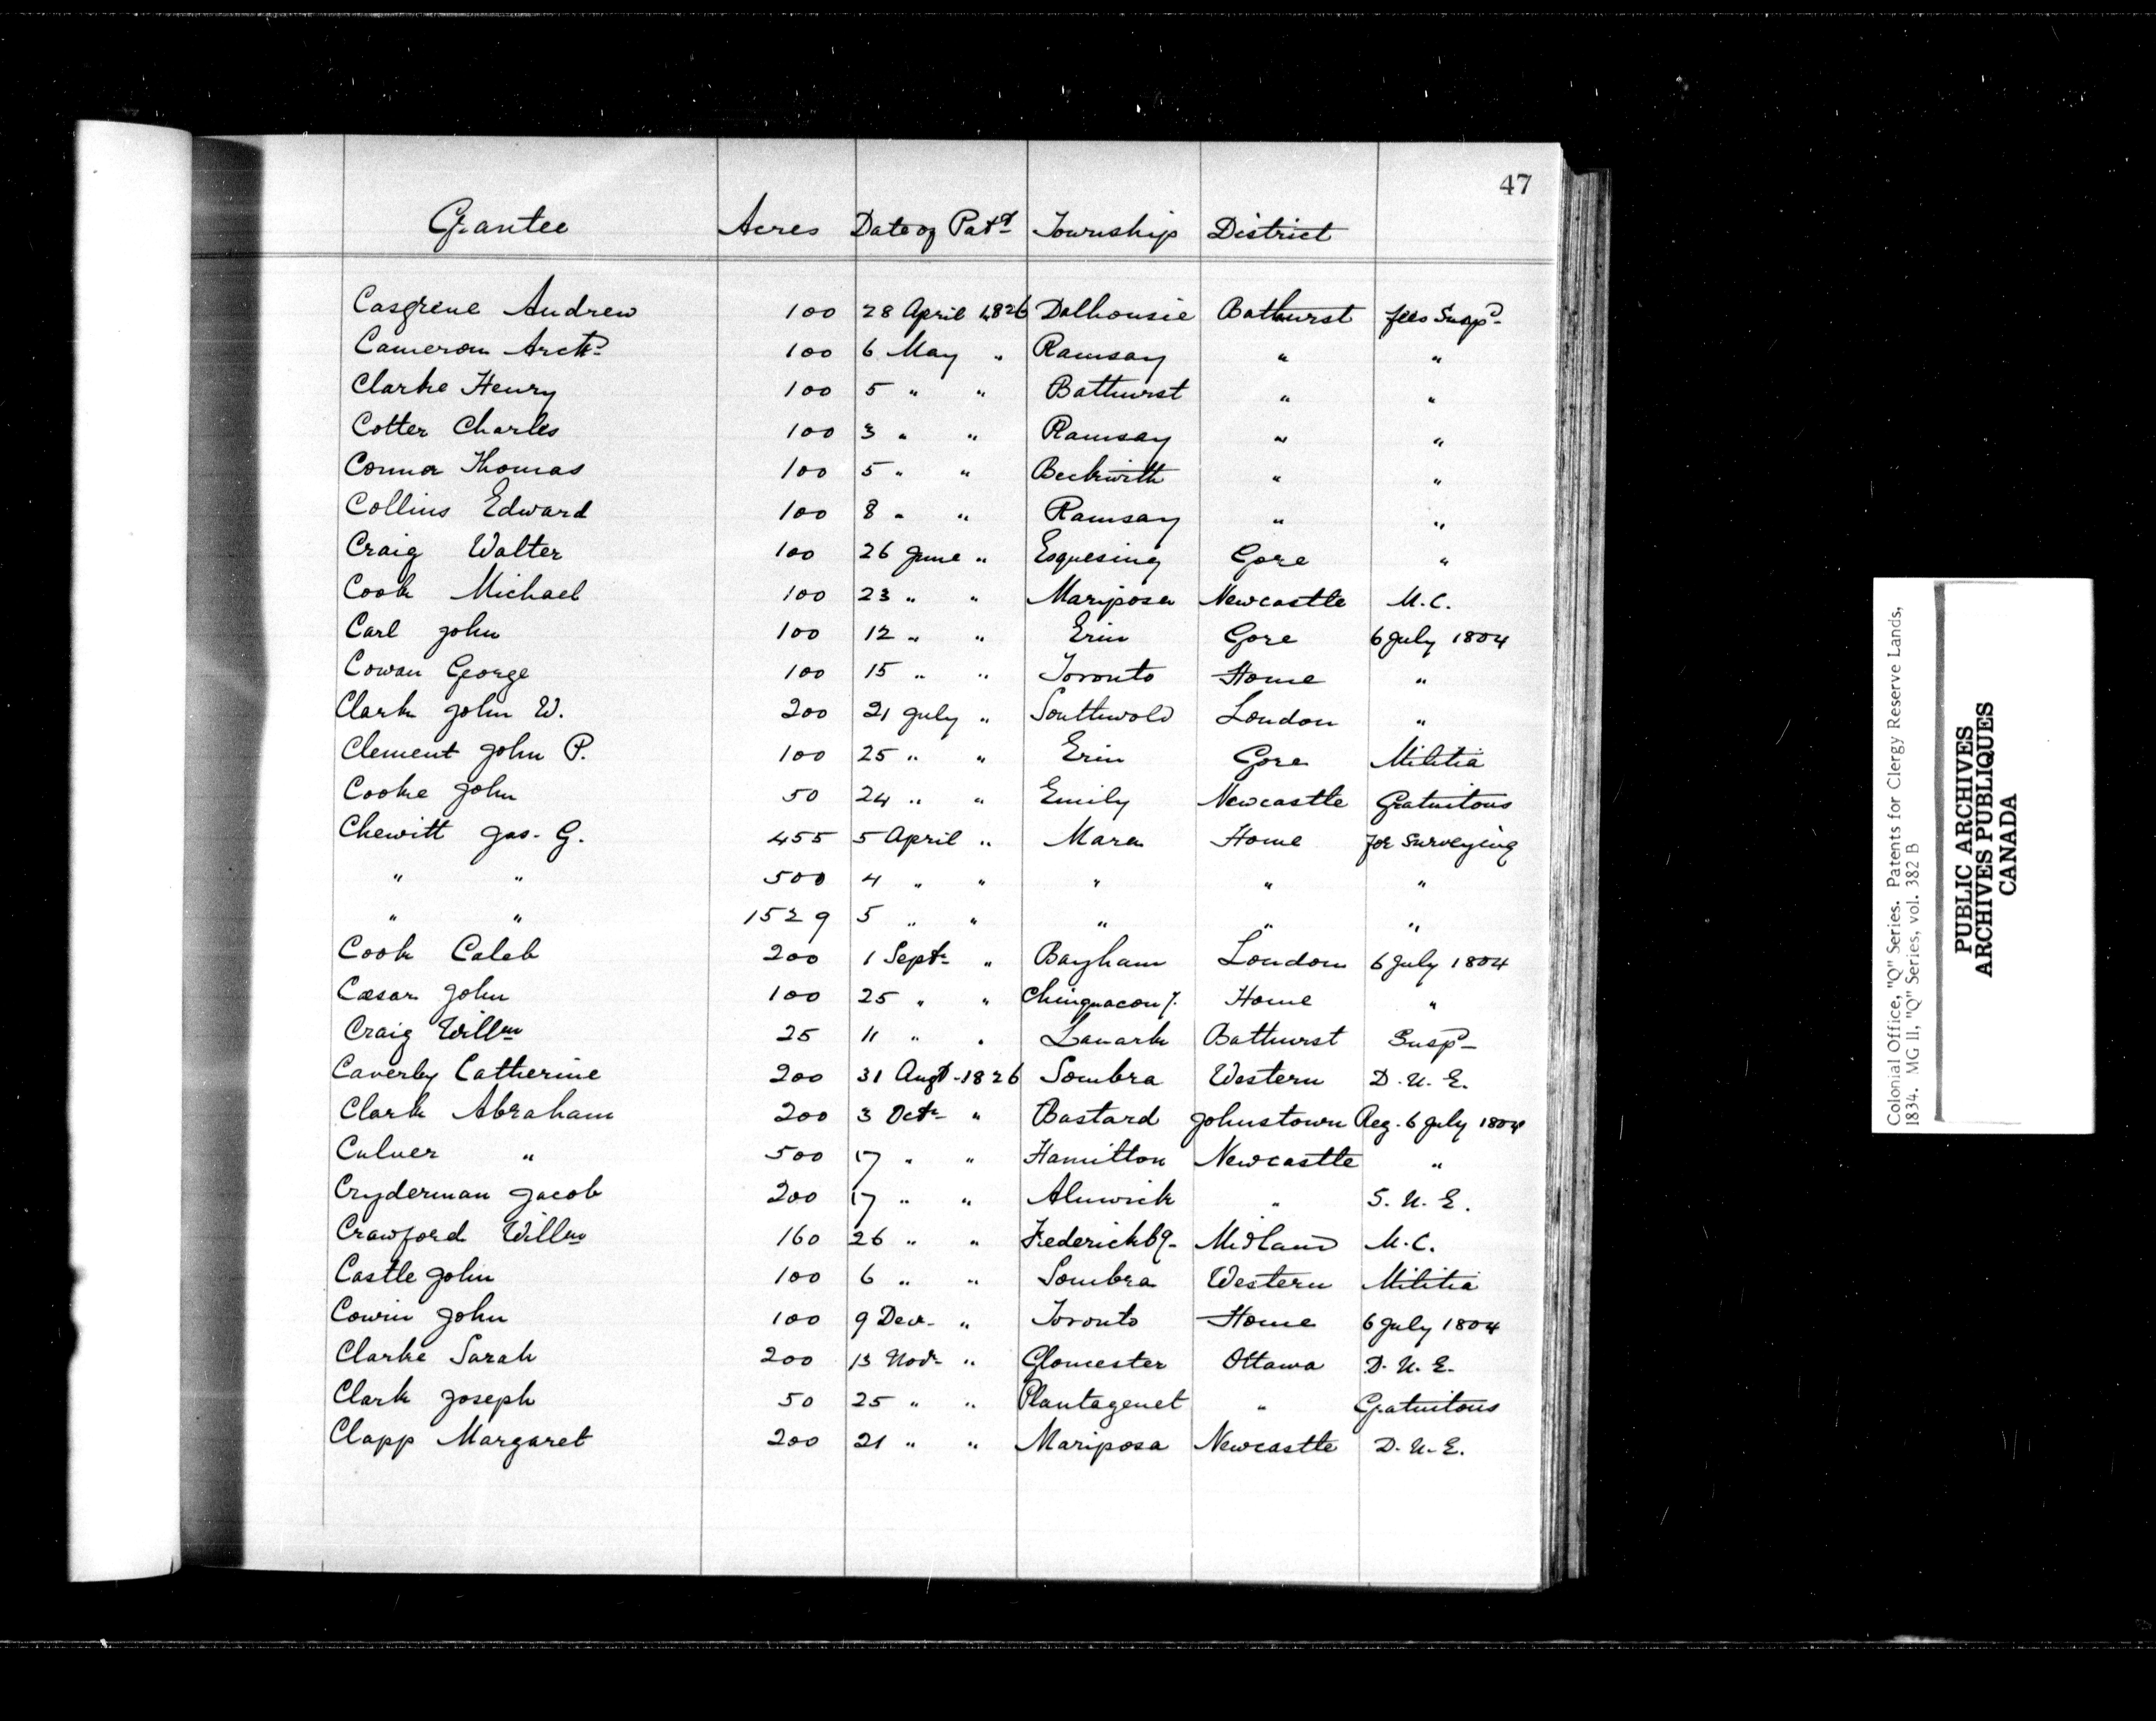 47
Grantee Acres Date of Patd Township District
Casgrene Andrew 100 28 April 1826 Dalhousie Bathurst fees Suspd
Cameron Archd 100 6 May " Ramsay " "
Clarke Henry 100 5 " " Bathurst " "
Cotter Charles 100 3 " " Ramsay " "
Connor Thomas 100 5 " " Beckwith " "
Collins Edward 100 8 " " Ramsay " "
Craig Walter 100 26 June " Esquesing Gore "
Cook Michael 100 23 " " Mariposa Newcastle M.C.
Carl John 100 12 " " Erin Gore 6 July 1804
Cowan George 100 15 " " Toronto Home "
Clark John W. 200 21 July " Southwold London "
Clement John P. 100 25 " " Erin Gore Militia
Cooke John 50 24 " " Emily Newcastle Gratuitous
Chewitt Jas. G. 455 5 April " Mara Home for Surveying
" " 500 4 " " " " "
" " 1529 5 " " " " "
Cook Caleb 200 1 Septr " Bayham London 6 July 1804
Cæsar John 100 25 " " Chinguacouy. Home "
Craig Willm 25 11 " " Lanark Bathurst Susp
Caverly Catherine 200 31 Augt-1826 Sombra Western D.U.E.
Clark Abraham 200 3 Octr " Bastard Johnstown Reg. 6 July 1804
Culver " 500 17 " " Hamilton Newcastle "
Cryderman Jacob 200 17 " " Alnwick " S.U.E.
Crawford Willm 160 26 " " Frederickbg Midland M.C.
Castle John 100 6 " " Sombra Western Militia
Cowin John 100 9 Decr " Toronto Home 6 July 1804
Clarke Sarah 200 13 Novr " Gloucester Ottawa D.U.E.
Clark Joseph 50 25 " " Plantagenet " Gratuitous
Clapp Margaret 200 21 " " Mariposa Newcastle D.U.E.
Colonial Office, "Q" Series. Patents for Clergy Reserve Lands,
1834. MG 11, "Q" Series, vol. 382 B
PUBLIC ARCHIVES
ARCHIVES PUBLIQUES
CANADA